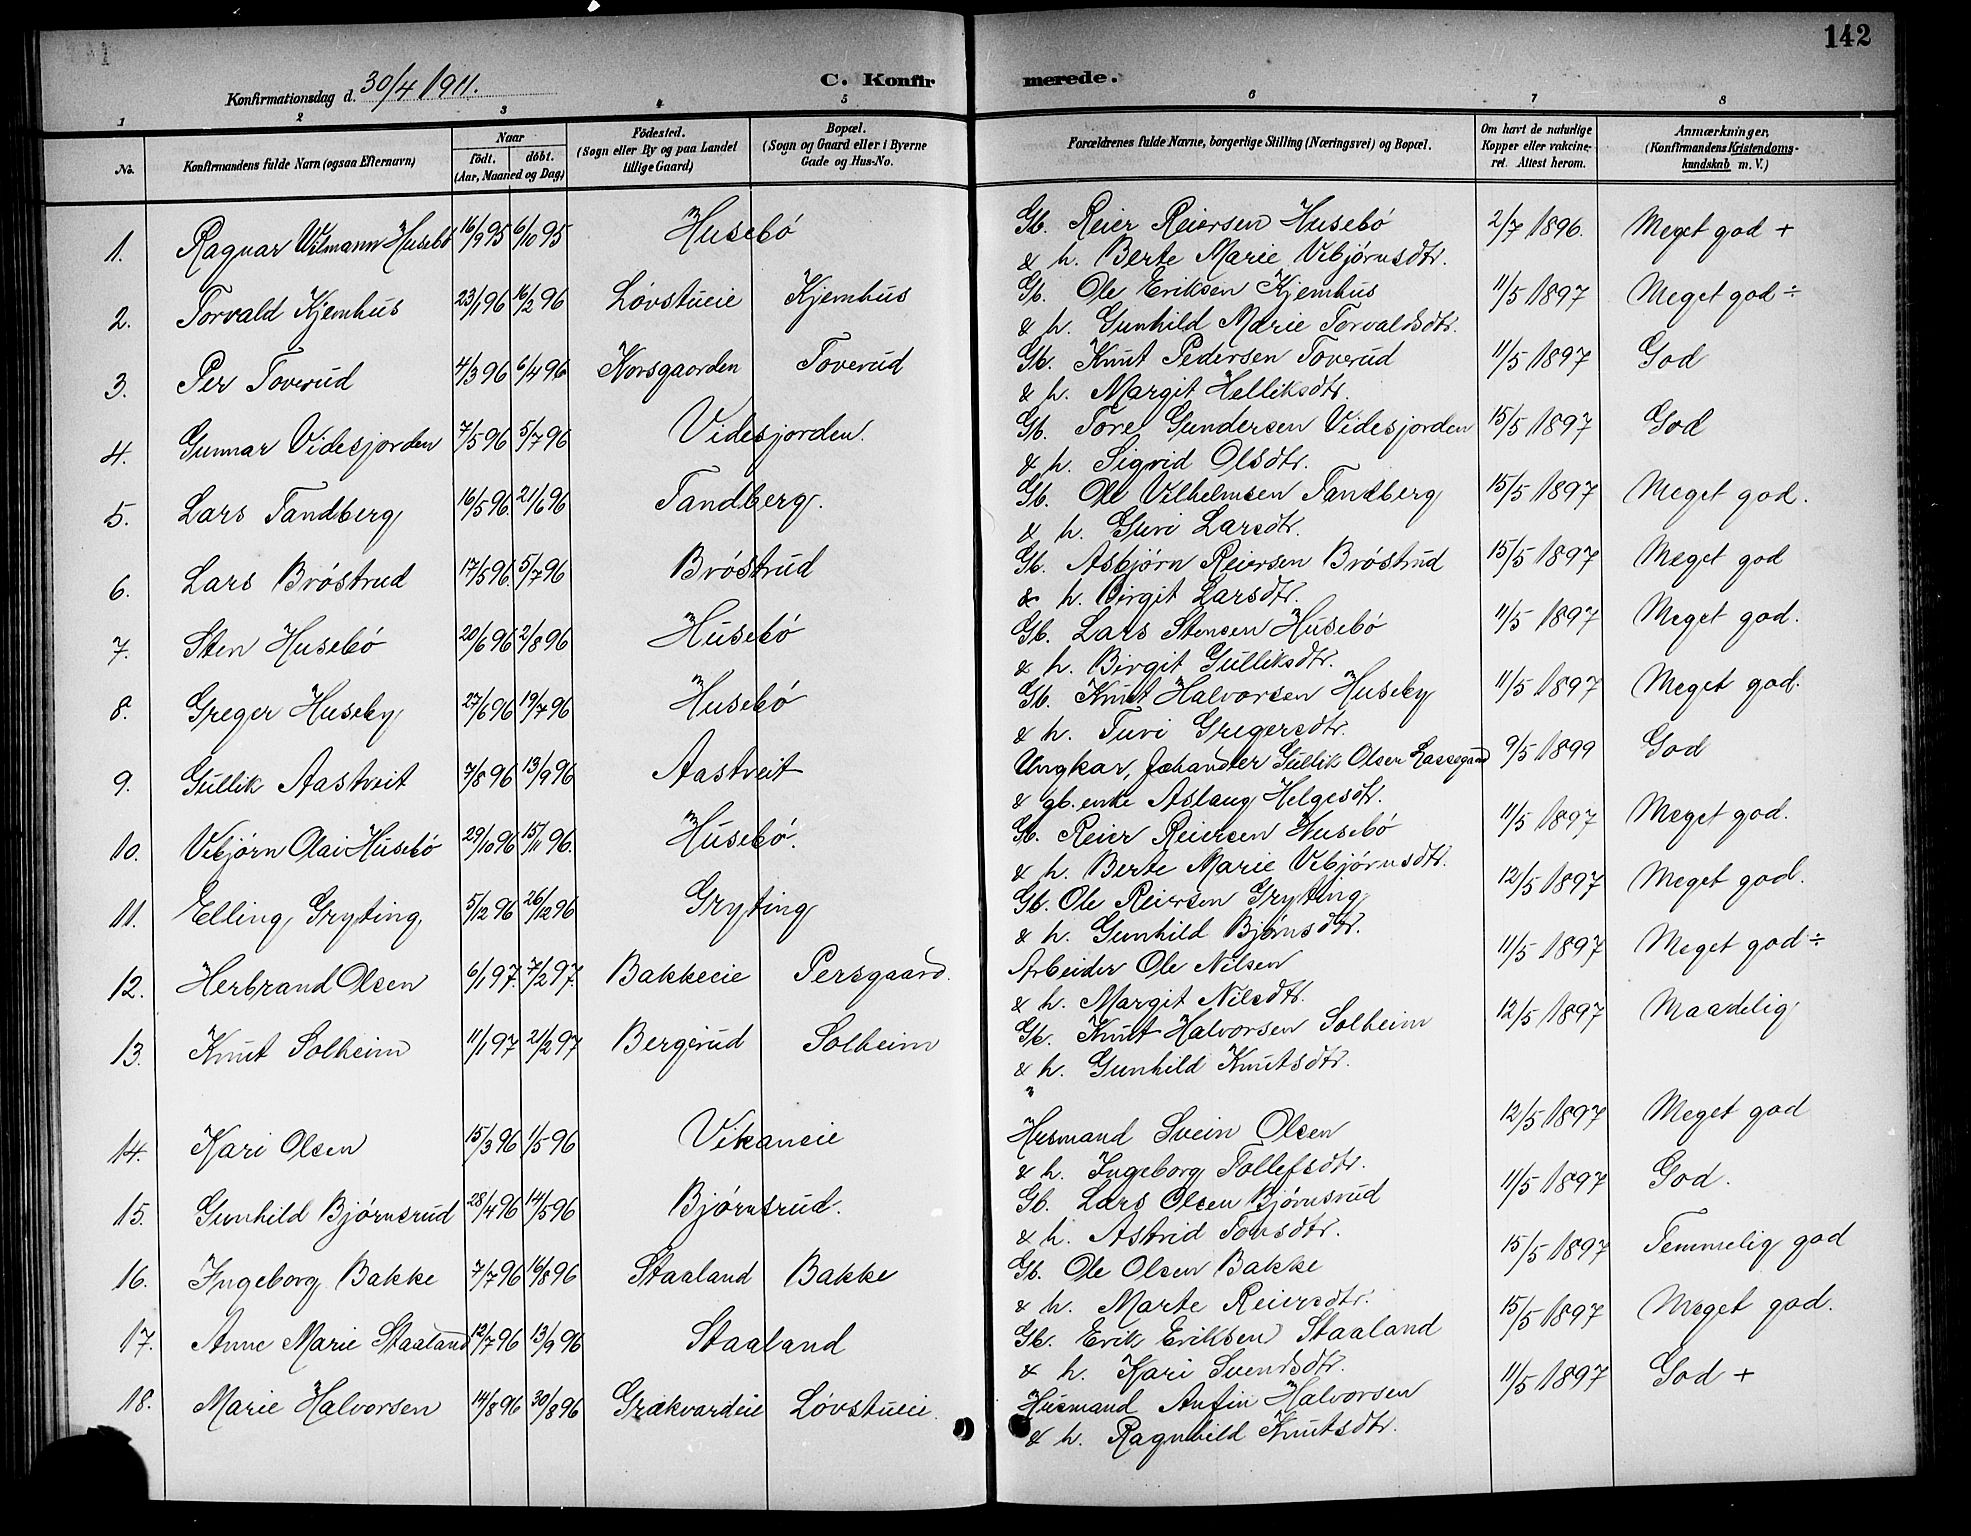 142
Konfirmationsdag d. 30/4 1911.
C. Konfirmerede.
1 2 3 4 5 6 7 8
No.
Konfirmandens fulde Navn (ogsaa Efternavn)
Naar
födt. döbt.
(Aar, Maaned og Dag)
Födested.
(Sogn eller By og paa Landet
tillige Gaard)
Bopæl.
(Sogn og Gaard eller i Byerne
Gade og Hus-No.
Forældrenes fulde Navne, borgerlige Stilling (Næringsvei) og Bopæl.
Om havt de naturlige
Kopper eller vakcine-
ret. Attest herom.
Anmærkninger,
(Konfirmandens Kristendoms-
kundskab m. V.)
1. Ragnar Wilmann Husebö 16/9 95 6/10 95 Husebö Gb. Reier Reiersen Husebö 2/7 1896. Meget god +
& h. Berte Marie Vebjörnsdtr.
2. Torvald Kjemhus 23/1 96 16/2 96 Lövstueie Kjemhus Gb. Ole Eriksen Kjemhus 11/5 1897 Meget god ÷
& h. Gunhild Marie Torvaldsdtr.
3. Per Toverud 4/3 96 6/4 96 Korsgaarden Toverud Gb. Knut Pedersen Toverud 11/5 1897 God
& h. Margit Helliksdtr.
4. Gunnar Videsjorden 7/5 96 5/7 96 Videsjorden. Gb. Tore Gundersen Videsjorden 15/5 1897 God
& h. Sigrid Olsdtr.
5. Lars Tandberg 16/5 96. 21/6 96 Tandberg. Gb. Ole Vilhelmsen Tandberg 15/5 1897 Meget god.
& h. Guri Larsdtr.
6. Lars Bröstrud 17/5 96. 5/7 96 Bröstrud Gb. Asbjörn Reiersen Bröstrud 15/5 1897 Meget god
& h. Birgit Larsdtr.
7. Sten Husebö 20/6 96 2/8 96 Husebö Gb. Lars Stensen Husebö 11/5 1897 Meget god.
& h. Birgit Gulliksdtr.
8. Greger Huseby 27/6 96 19/7 96 Husebö Gb. Knut Halvorsen Huseby 11/5 1897 Meget god.
& h. Turi Gregersdtr.
9. Gullik Aastveit 7/8 96 13/9 96 Aastveit Ungkar, Johandler Gullik Olsen Lassegaard 9/5 1899 God
& gb. enke Aslaug Helgesdtr.
10. Vebjörn Olai Husebö 29/10 96 15/11 96. Husebö. Gb. Reier Reiersen Husebö 11/5 1897 Meget god.
& h. Berte Marie Vebjörnsdtr.
11. Elling Gryting 5/12 96 26/12 96 Gryting Gb. Ole Reiersen Gryting 12/5 1897 Meget god.
& h. Gunhild Björnsdtr.
12. Herbrand Olsen 6/1 97. 7/2 97. Bakkeeie Persgaard. Arbeider Ole Nilsen 11/5 1897 Meget god ÷
& h. Margit Nilsdtr.
13. Knut Solheim 11/1 97 21/2 97 Bergerud Solheim Gb. Knut Halvorsen Solheim 12/5 1897 Maadelig
& h. Gunhild Knutsdtr.
14. Kari Olsen 15/3 96 1/5 96 Vikaneie Husmand Svein Olsen 12/5 1897 Meget god
& h. Ingeborg Tollefsdtr.
15. Gunhild Björnsrud 28/4 96 14/5 96 Björnsrud. Gb. Lars Olsen Björnsrud 11/5 1897 God.
& h. Astrid Tonsdtr.
16. Ingeborg Bakke 7/7 96 16/8 96 Staaland Bakke Gb. Ole Olsen Bakke 15/5 1897 Temmelig god
& h. Marte Reiersdtr.
17. Anne Marie Staaland 12/7 96 13/9 96 Staaland Gb. Erik Eriksen Staaland 15/5 1897 Meget god.
& h. Kari Svendsdtr.
18. Marie Halvorsen 14/8 96 30/8 96 Grækvardeie Lövstueie. Husmand Anfin Halvorsen 11/5 1897 God +
& h. Ragnhild Knutsdtr.